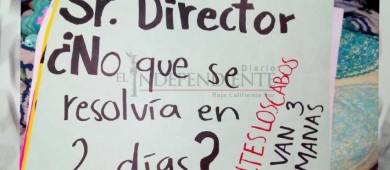 Sr. Director
¿No que se
resolvía en
2 días?
TES LOS CADOS
VAN 3
MANAS
Diario
EL INDEPENDIENTE
Baja California Sur